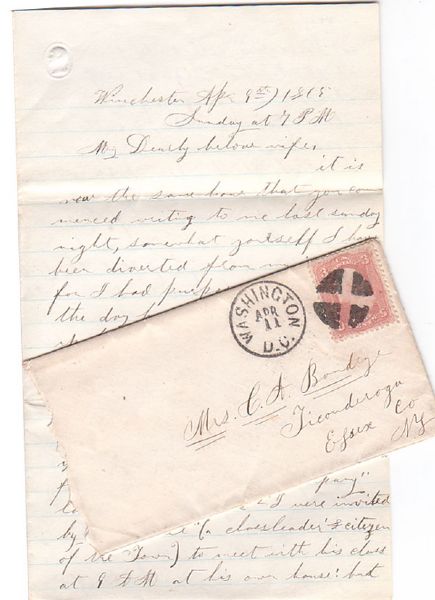 Winchester Apr 9th) 1865
Sunday at 7 PM
My Dearly belove wife,
it is
near the same hour that you com
menced writig to me last sunday
night, somewhat yourself I ha
been diverted from m
for I had prep
the day
WASHINGTON
APR
11
D.C.
Mrs. C. A. Bondge
Ticonderoga
Essex Co
NY
pany"
I were invited
by (a classleader & citizen
of the Town) to meet with his class
at 9 AM at his own house: but